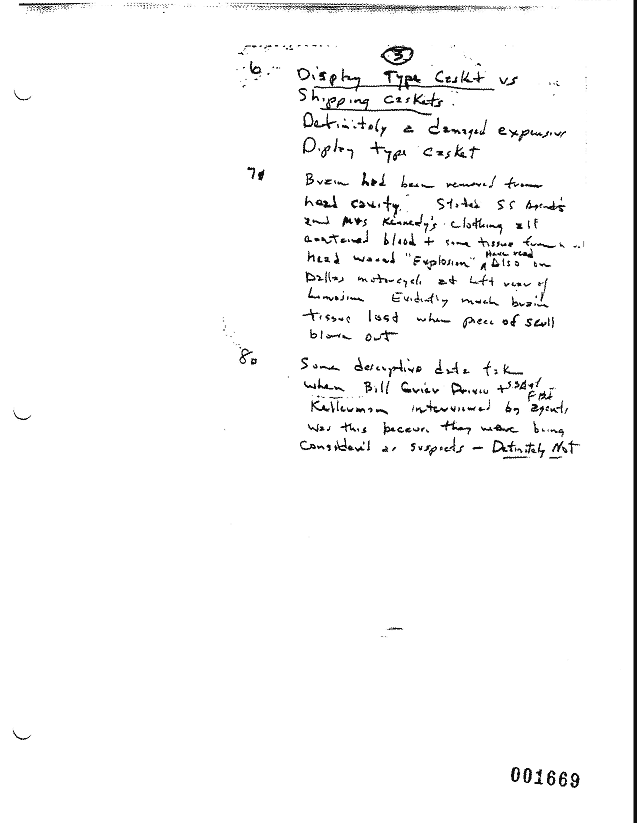 3
6. Display Type Caskt vs
Shipping Caskets.
Definitely a damaged expensive
Diplay type casket
7.
Brain had been removed from
head cavity. Stated SS Agents
and Mrs Kennedy's clothing all
contained blood + some tissue from
head wound "Explosion", Have read Also on
Dallas motorcycle at left rear of
Limosine Evidently much brain
tissue losd when piece of scull
blown out
8.
Some descriptive data tak
when Bill Grier Driver + SSAgt
Kellerman interviewed by FBI agents
was this because they were being
considered as suspects – Definitely Not
001669